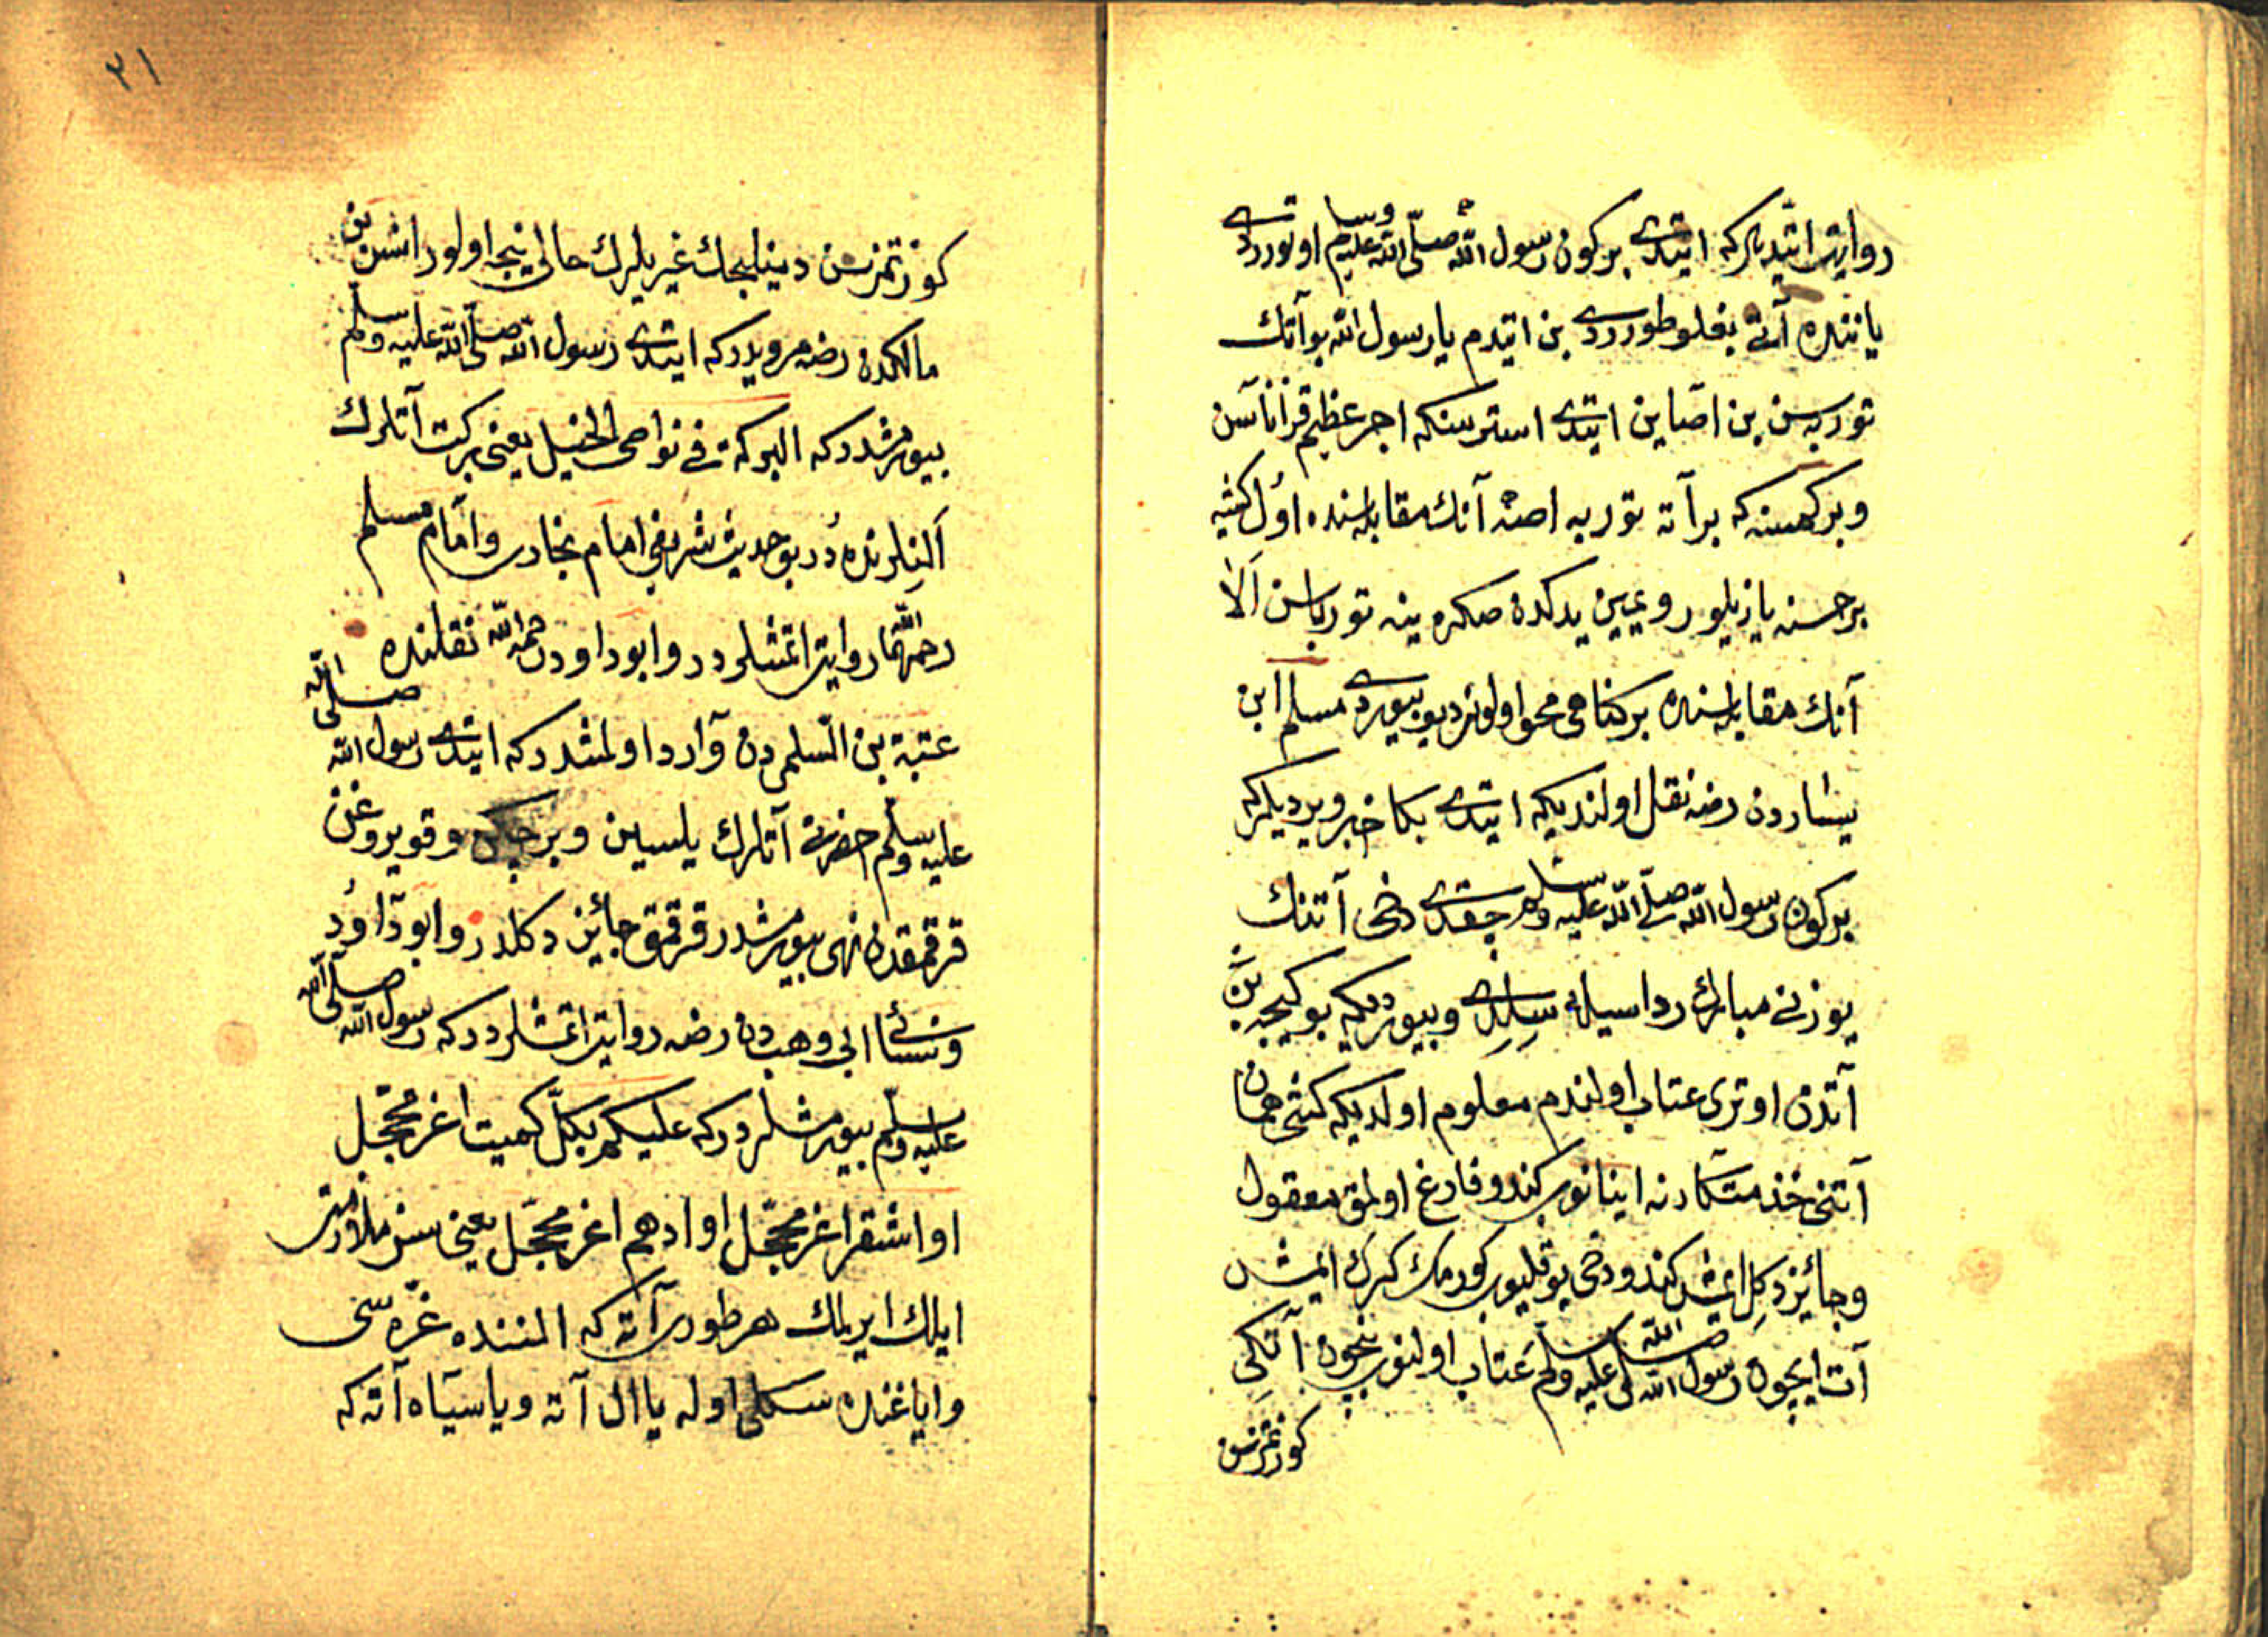 روايت ايتديلركه ايتدى بر كون رسول الله صلى الله عليه وسلم اوتوردى
ياننده آتى بغلو طوردى بن ايتدم يا رسول الله بو آتك
توربه سن بن اصاين ايتدى استرسنكه اجر عظيم قزاناسن
وبر كمسنه كه بر آته توربه اصه آنك مقابله سنده اول كشيه
بر حسنه يازيلور ويمين يدكدن صكره ينه توربا سن الا
آنك مقابله سنده بر كناهى محو اولور ديو بيوردى مسلم ابن
يساردن رضه نقل اولنديكه ايتدى بكا خبر ويرديلركه
بر كون رسول الله صلى الله عليه وسلم چقدى دخى آتنك
يوزنى مبارك رداسيله سلدى وبيورديكه بو كيجه بن
آتدن اوترى عتاب اولندم معلوم اولديكه كشى همان
آتنى خدمتكارنه اينانوب كندو فارغ اولمق معقول
وجائز دكل ايمش كندو دخى يوقليوب كورمك كرك ايمش
آت ايچون رسول الله صلى الله عليه وسلم عتاب اولنوب نيچون آتكى
كوزتمزسن
٢١
كوزتمزسن دينلیجك غيريلرك حالى نيجه اولور انس بن
مالكدن رضه مرويدركه ايتدى رسول الله صلى الله عليه وسلم
بيورمشدركه البركة فى نواصى الخيل يعنى بركت آتلرك
آلنلرنده در بو حديث شريفى امام بخارى وامام مسلم
رحمهما الله روايت اتمشلردر وابو داودن رحمه الله نقلنده
عتبة بن السلمى دن وارد اولمشدركه ايتدى رسول الله صلى الله
عليه وسلم حضرتى آتلرك يلسين وبرچكن وقويروغن
قرقمقدن نهى بيورمشدر قرقمق جائز دكلدر وابو داود
ونسائى ابى وهب دن رضه روايت اتمشلردركه رسول الله صلى الله
عليه وسلم بيورمشلردركه عليكم بكل كميت اغر محجل
او اشقر اغر محجل او ادهم اغر محجل يعنى سز ملازمت
ايلك ايريلمك هر طورى آته كه الننده غره سى
واياغنده سكلى اوله يا ال آته ويا سياه آته كه